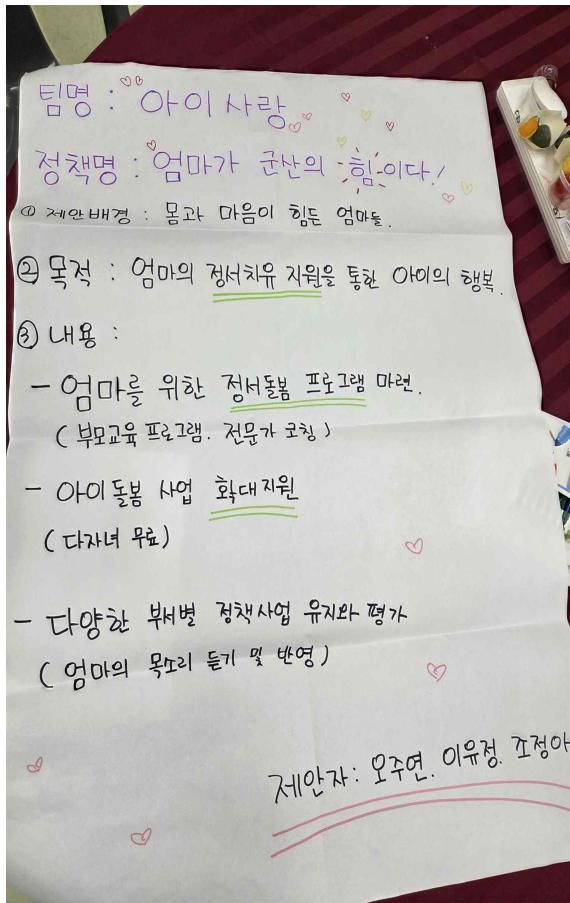 팀명 : 아이사랑
정책명 : 엄마가 군산의 힘이다!
① 제안배경 : 몸과 마음이 힘든 엄마들.
② 목적 : 엄마의 정서치유 지원을 통한 아이의 행복.
③ 내용 :
- 엄마를 위한 정서돌봄 프로그램 마련.
( 부모교육 프로그램. 전문가 코칭 )
- 아이돌봄 사업 확대지원
( 다자녀 무료 )
- 다양한 부서별 정책사업 유지와 평가
( 엄마의 목소리 듣기 및 반영 )
제안자 : 오주연. 이유정. 조정아